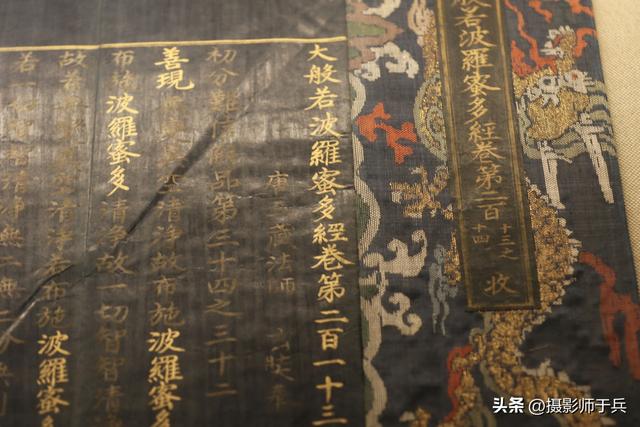 般若波羅蜜多經卷第二百十三之十四 收
大般若波羅蜜多經卷第二百一十三
唐三藏法師 玄奘奉
初分難信解品第三十四之三十二
善現清淨故布施波羅蜜多
布施波羅蜜多清淨故一切智智清
故若清淨若布施波羅蜜多
若清淨無二無二
头条 @摄影师于兵